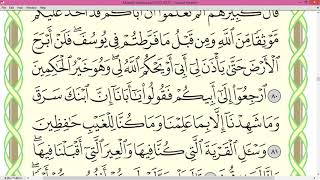 قَالَ كَبِيرُهُمْ أَلَمْ تَعْلَمُوٓا۟ أَنَّ أَبَاكُمْ قَدْ أَخَذَ عَلَيْكُم
مَّوْثِقًا مِّنَ ٱللَّهِ وَمِن قَبْلُ مَا فَرَّطتُمْ فِى يُوسُفَ ۖ فَلَنْ أَبْرَحَ
ٱلْأَرْضَ حَتَّىٰ يَأْذَنَ لِىٓ أَبِىٓ أَوْ يَحْكُمَ ٱللَّهُ لِى ۖ وَهُوَ خَيْرُ ٱلْحَٰكِمِينَ
٨٠ ٱرْجِعُوٓا۟ إِلَىٰٓ أَبِيكُمْ فَقُولُوا۟ يَٰٓأَبَانَآ إِنَّ ٱبْنَكَ سَرَقَ
وَمَا شَهِدْنَآ إِلَّا بِمَا عَلِمْنَا وَمَا كُنَّا لِلْغَيْبِ حَٰفِظِينَ
٨١ وَسْـَٔلِ ٱلْقَرْيَةَ ٱلَّتِى كُنَّا فِيهَا وَٱلْعِيرَ ٱلَّتِىٓ أَقْبَلْنَا فِيهَا ۖ